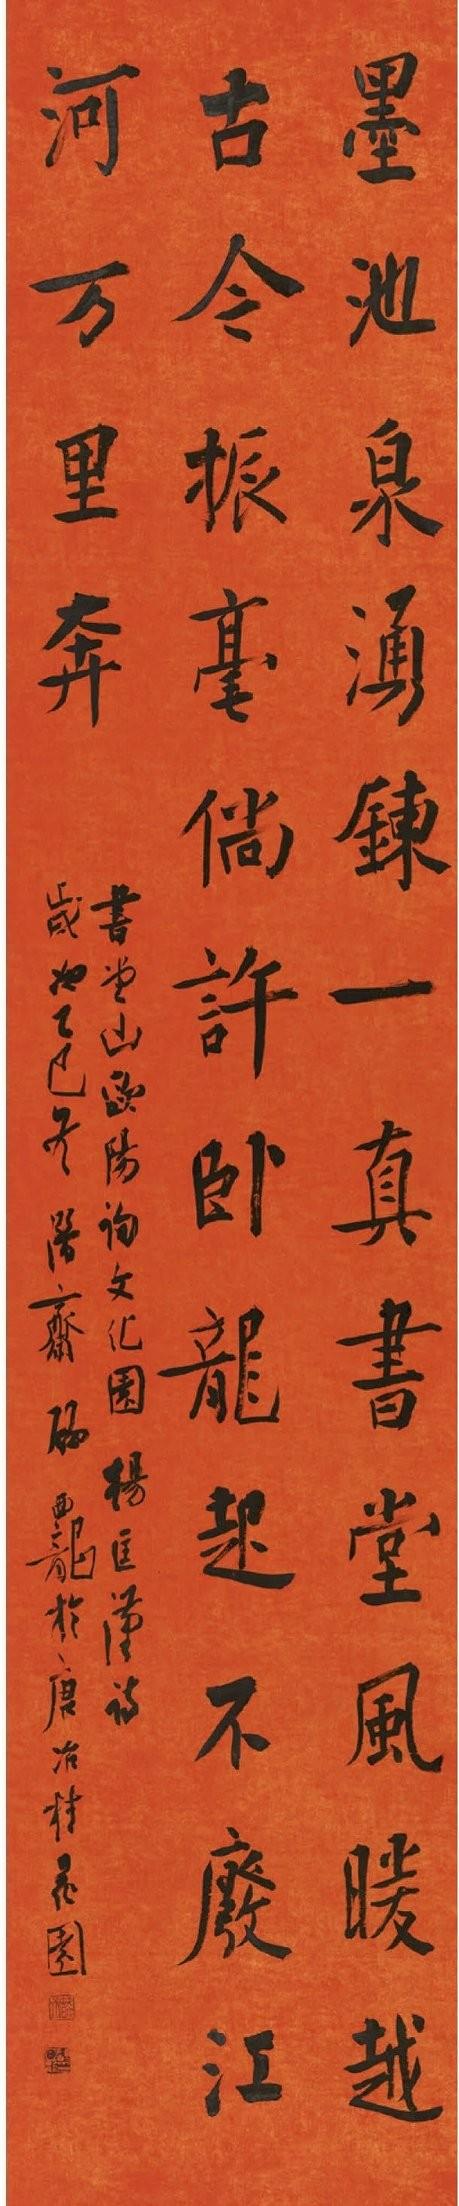 墨池泉湧鍊一真書堂風暖越
古今振毫倘許卧龍起不廢江
河万里奔
書堂山歐陽詢文化園 楊匡漢詩
歲次乙巳冬 齋 龍於唐冶桂花園